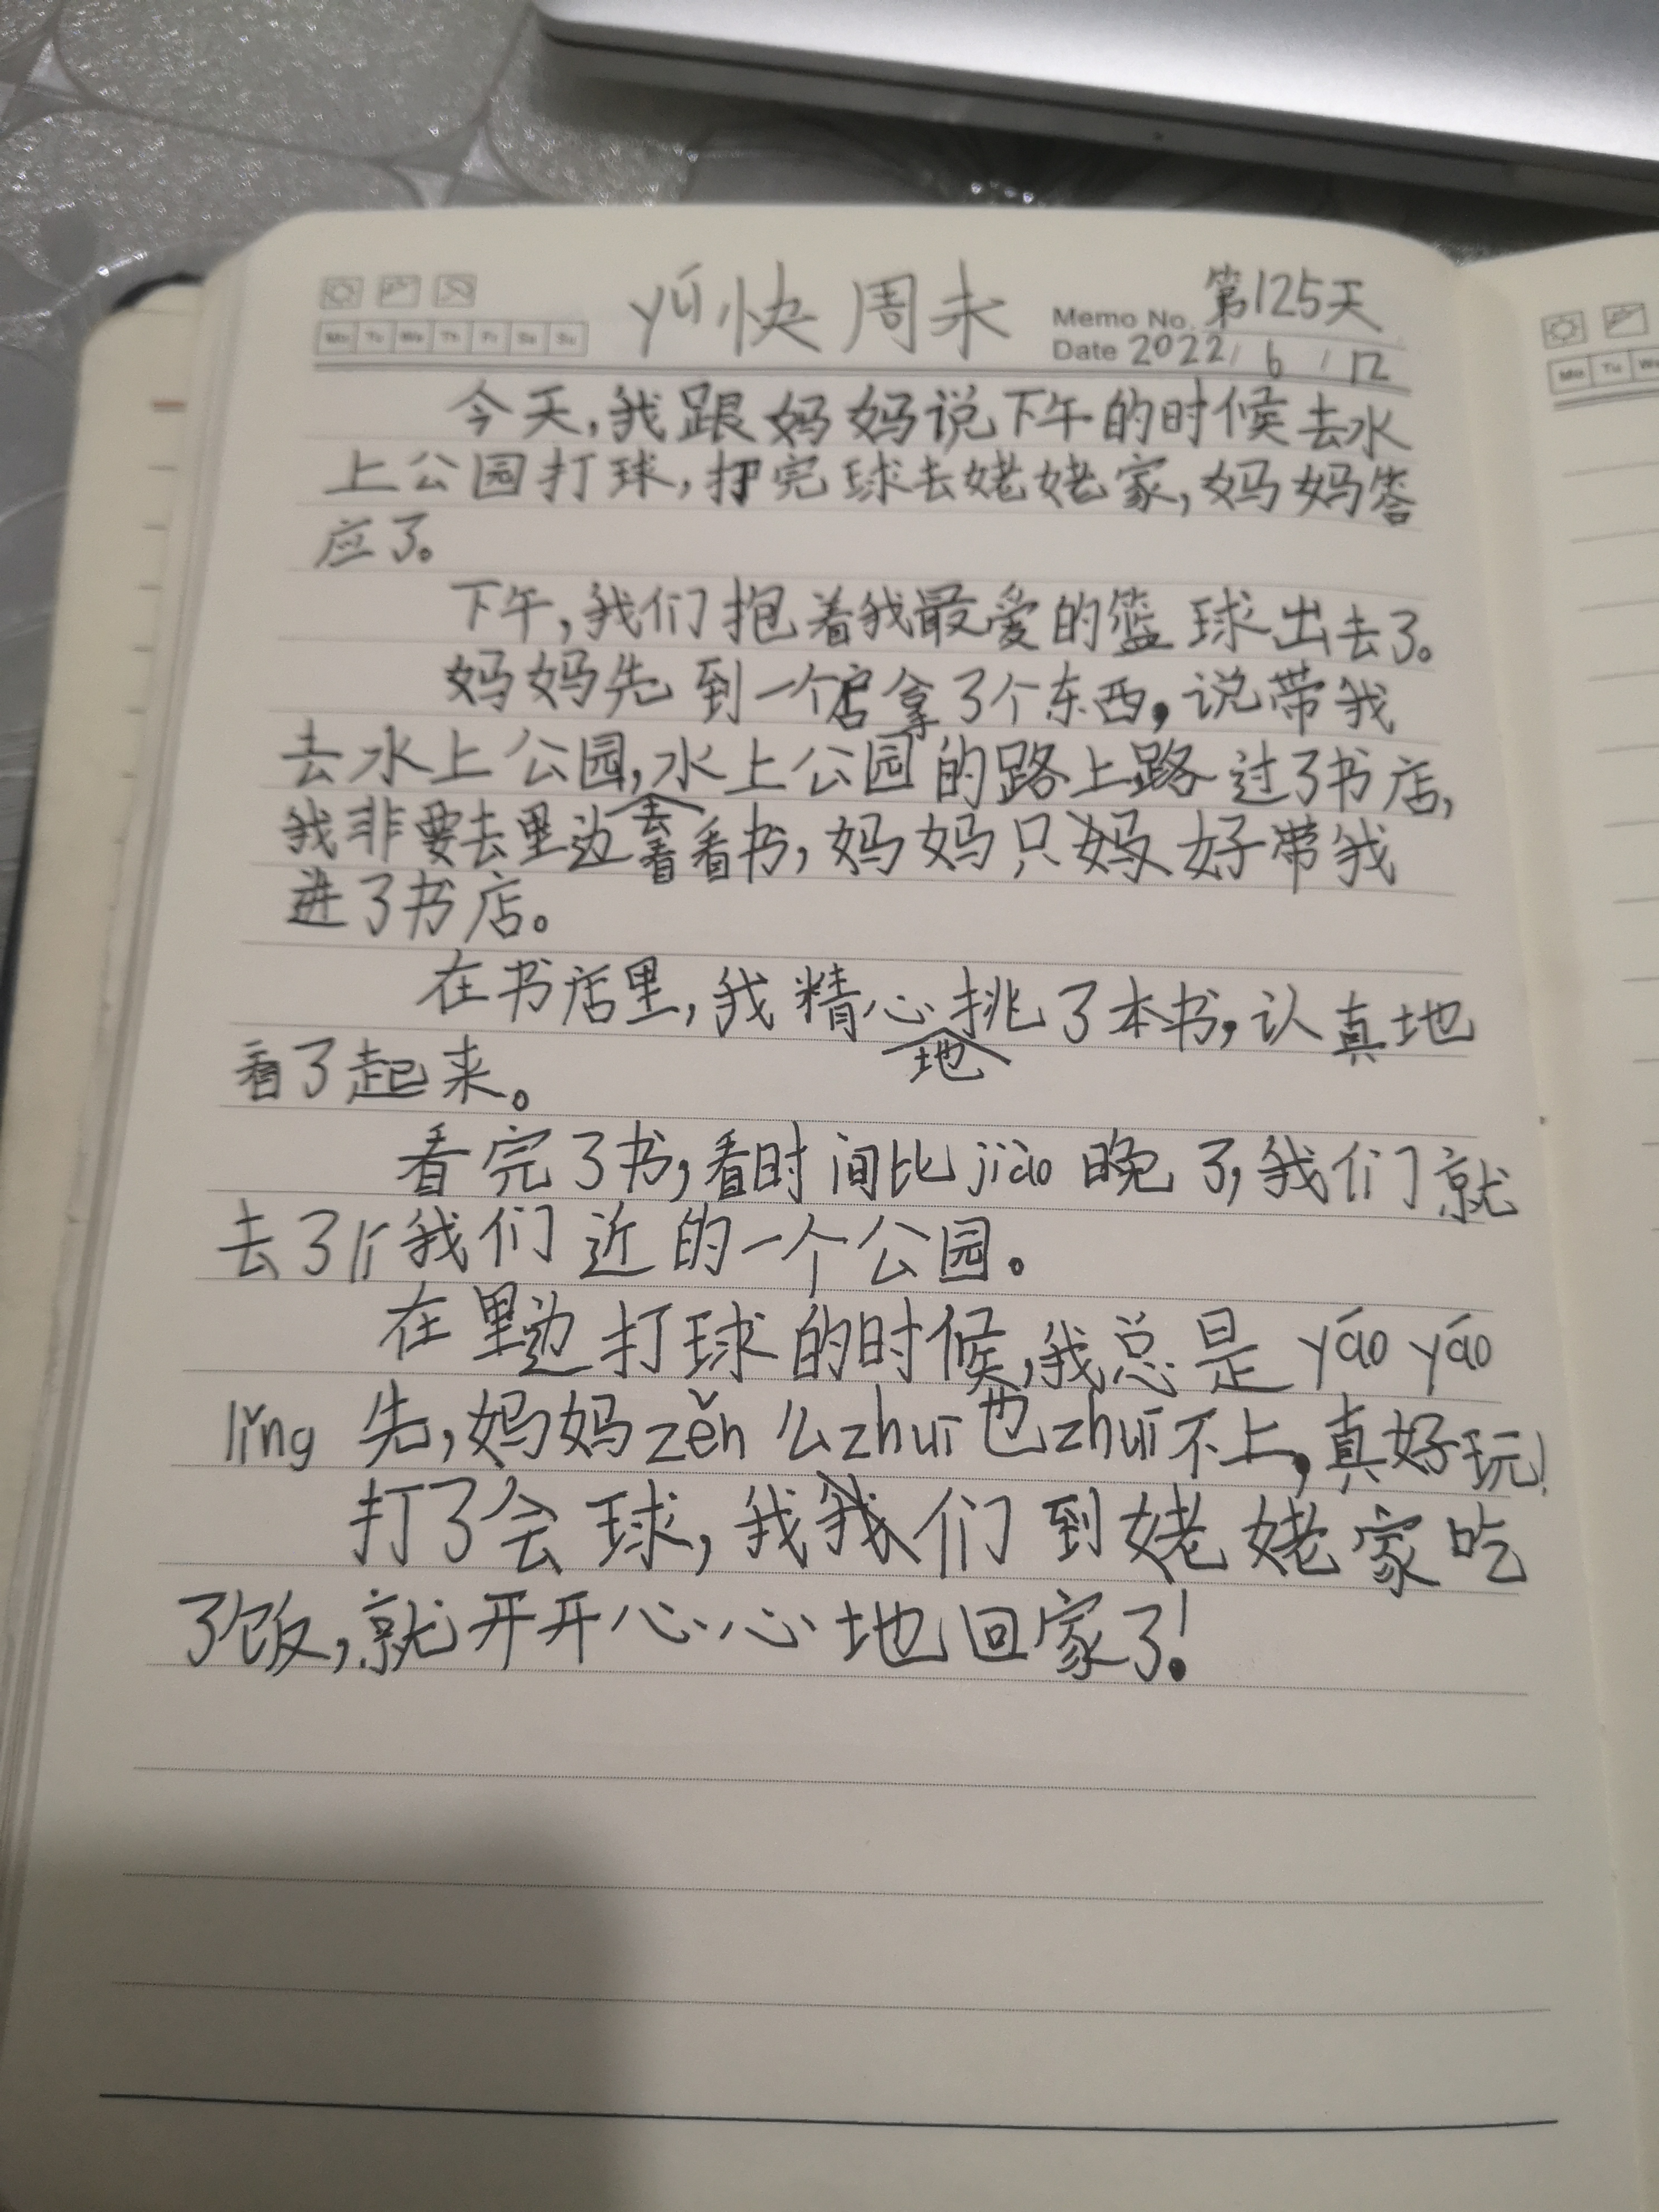 yú快周末
Memo No. 第125天
Mo Tu We Th Fr Sa Su
Date 2022/6/12
今天,我跟妈妈说下午的时候去水
上公园打球,打完球去姥姥家,妈妈答
应了。
下午,我们抱着我最爱的篮球出去了。
妈妈先到一个店拿了个东西,说带我
去水上公园,水上公园的路上路过了书店,
我非要去里边去看看书,妈妈只好带我
进了书店。
在书店里,我精心地挑了本书,认真地
看了起来。
看完了书,看时间比jiào晚了,我们就
去了我们近的一个公园。
在里边打球的时候,我总是yáo yáo
lǐng先,妈妈zěn么zhuī也zhuī不上,真好玩!
打了会球,我们到姥姥家吃
了饭,就开开心心地回家了!
Mo Tu We